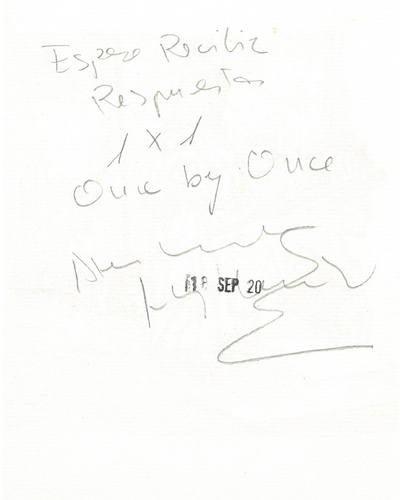 Espero Recibir
Respuestas
1 x 1
Once by Once
18 SEP 20